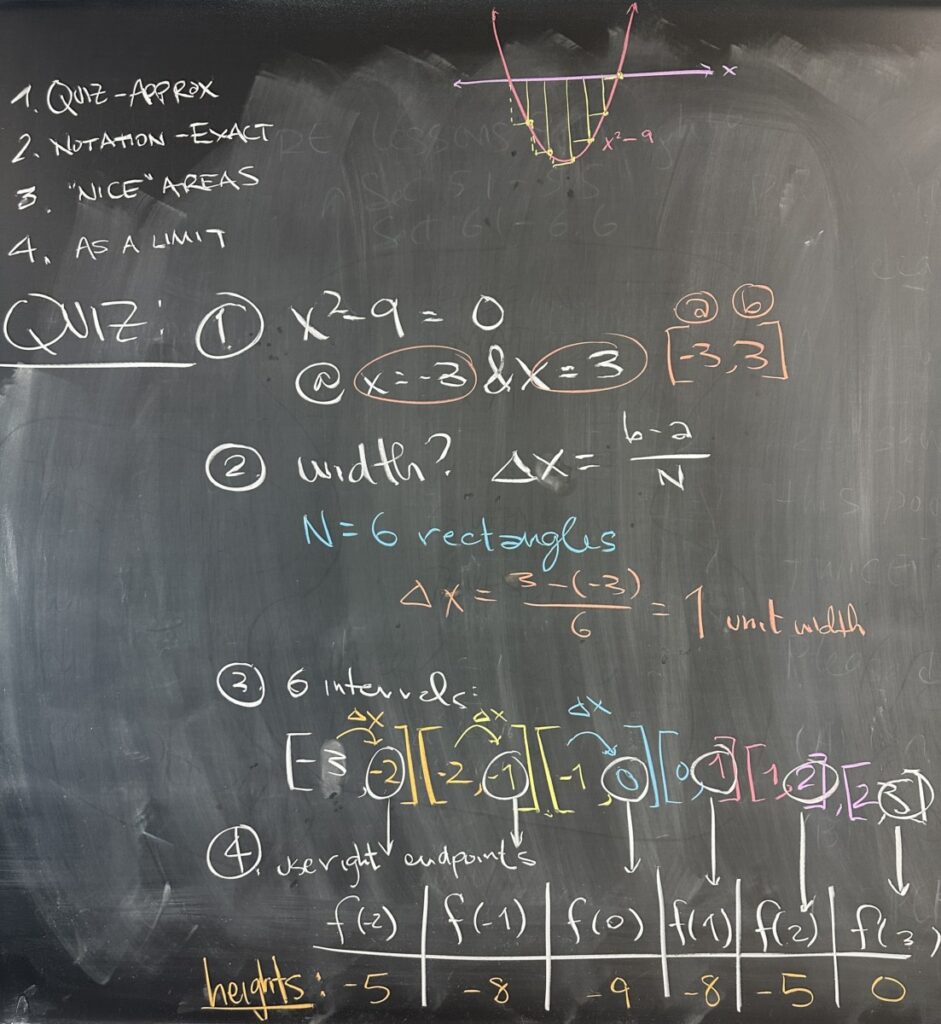 1. QUIZ - APPROX
2. NOTATION - EXACT
3. "NICE" AREAS
4. AS A LIMIT
x
x²-9
QUIZ: ① x²-9 = 0
@ x=-3 & x=3
ⓐ ⓑ
[-3, 3]
② width? Δx = (b-a)/N
N=6 rectangles
Δx = (3-(-3))/6 = 1 unit width
③ 6 intervals:
Δx Δx Δx
[-3, -2] [-2, -1] [-1, 0] [0, 1] [1, 2], [2, 3]
④ use right endpoints
f(-2) | f(-1) | f(0) | f(1) | f(2) | f(3)
heights: -5 | -8 | -9 | -8 | -5 | 0